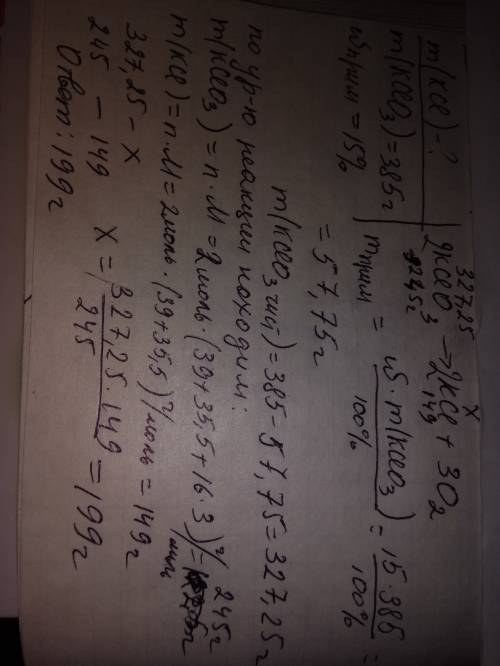 m(KClO3) = 385г
ω прим = 15%
m(KCl) - ?
327,25 x
2KClO3 → 2KCl + 3O2
245г 149
m прим = ω · m(KClO3) / 100% = 15 · 385 / 100% =
= 57,75г
m(KClO3 чист) = 385 - 57,75 = 327,25г
по ур-ю реакции находим:
m(KClO3) = n · M = 2моль · (39+35,5+16·3) г/моль = 245г
m(KCl) = n · M = 2моль · (39+35,5) г/моль = 149г
327,25 - x
245 - 149
x = 327,25 · 149 / 245 = 199г
Ответ: 199г